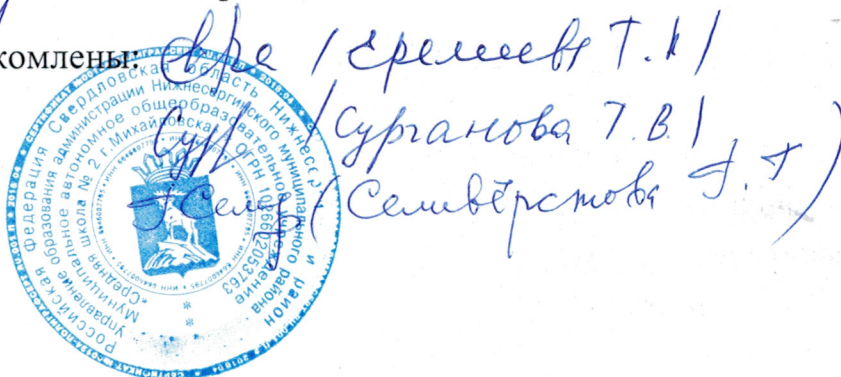 комлены: / Еремеева Т.Н/
/Сурганова Т.В./
(Селивёрстова Г.Г)
Российская Федерация Свердловская область Нижнесергинский район
Управление образования администрации Нижнесергинского муниципального района
Муниципальное автономное общеобразовательное учреждение
«Средняя школа № 2 г.Михайловска» ОГРН 1026602053763
* ИНН 6646007795 * ИНН 6646007795 *